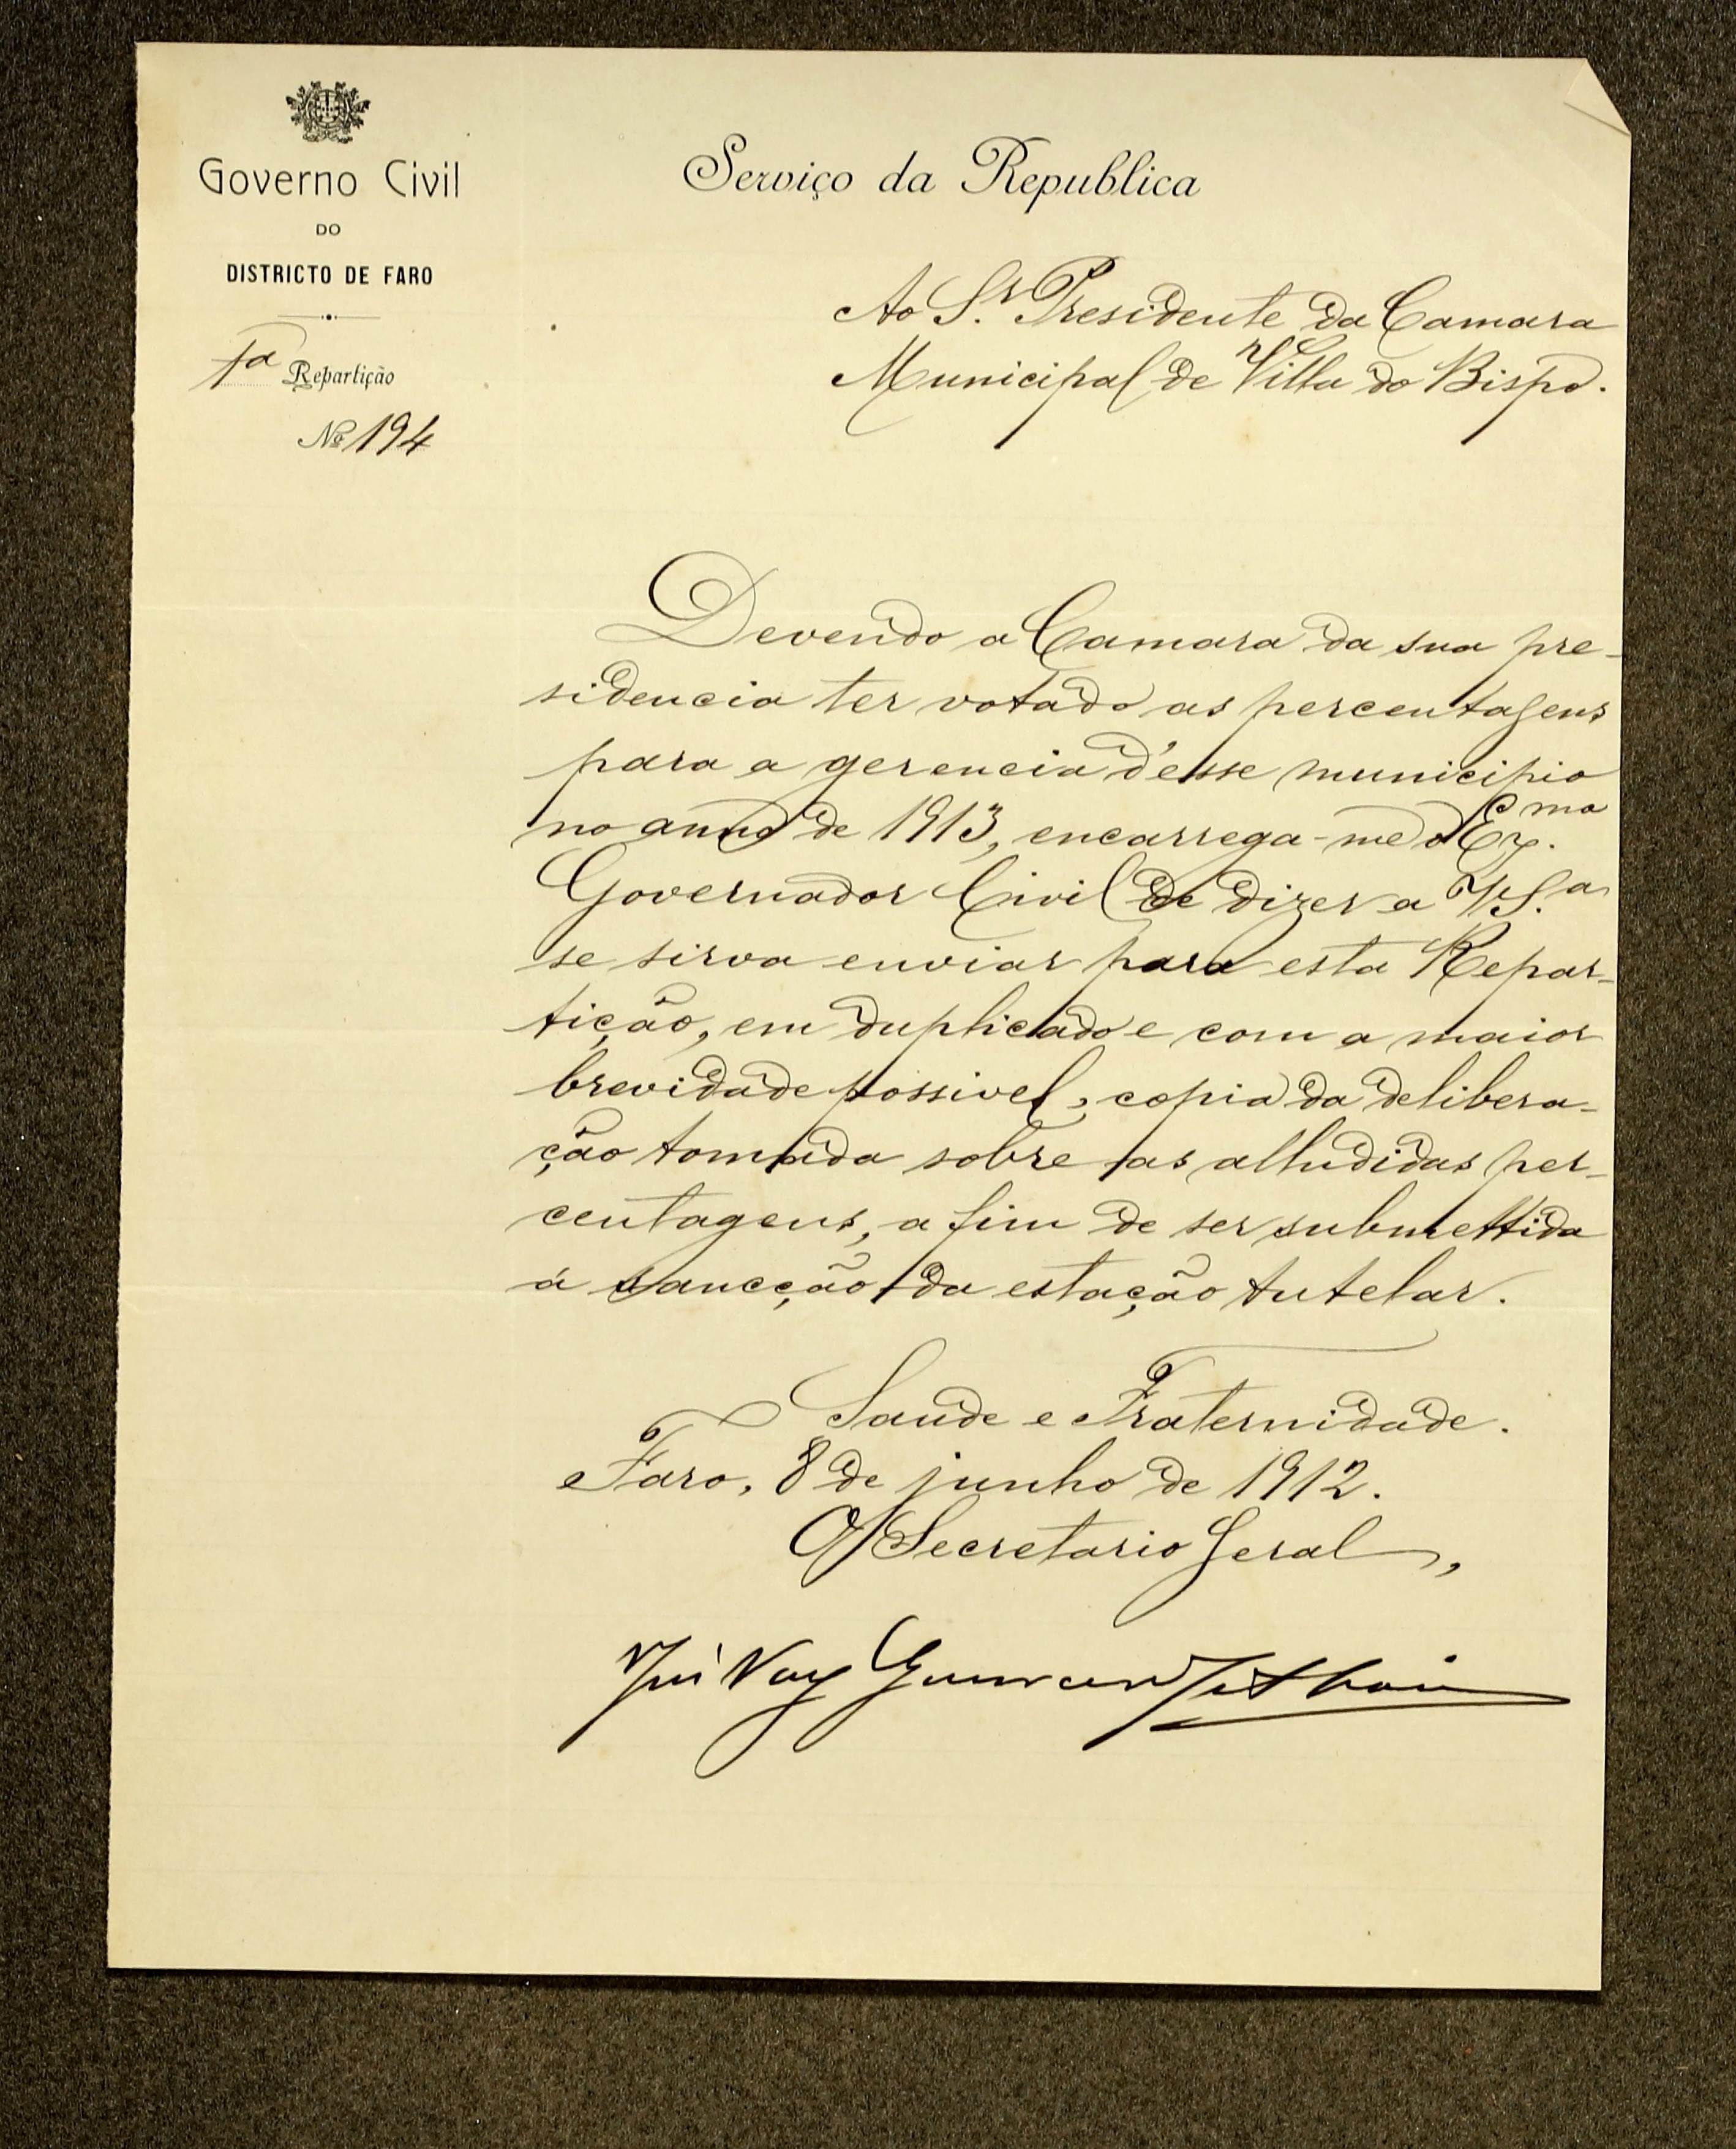 Governo Civil
DO
DISTRICTO DE FARO
1ª Repartição
Nº 194
Serviço da Republica
Ao Sr. Presidente da Camara
Municipal de Villa do Bispo.
Devendo a Camara da sua pre-
sidencia ter votado as percentagens
para a gerencia d'esse municipio
no anno de 1913, encarrega-me o Exmo.
Governador Civil de dizer a V. S.ª
se sirva enviar para esta Repar-
tição, em duplicado e com a maior
brevidade possivel, copia da delibera-
ção tomada sobre as alludidas per-
centagens, a fim de ser submettida
á sancção da estação tutelar.
Saude e Fraternidade.
Faro, 8 de junho de 1912.
O Secretario Geral,
José Vaz